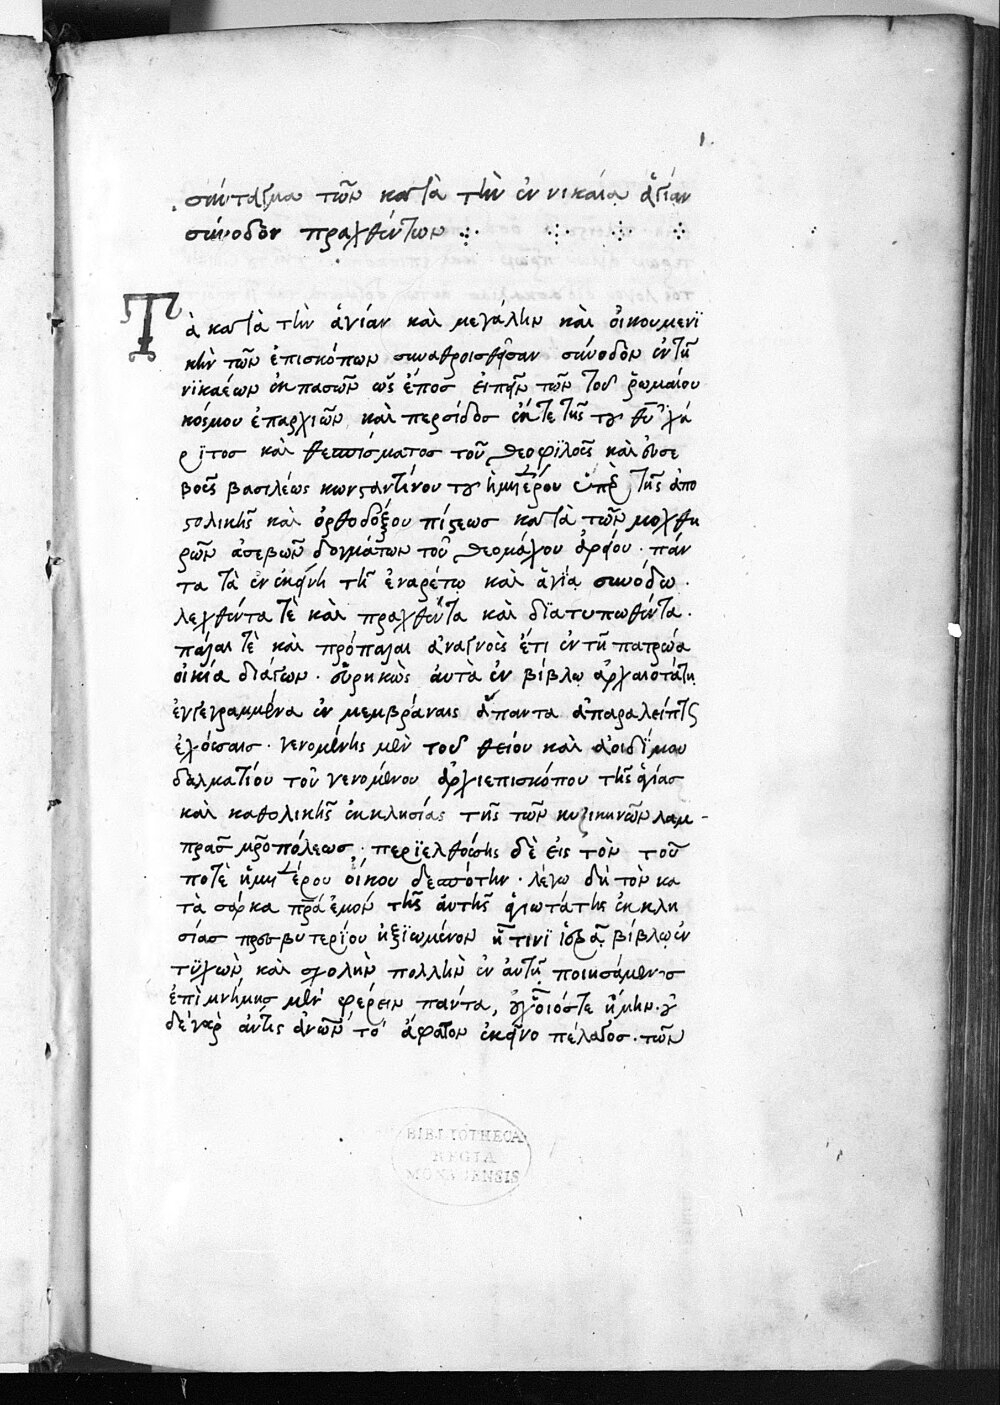 1.
σύνταγμα τῶν κατὰ τὴν ἐν νικαία ἁγίαν
σύνοδον πραχθέντων
Τὰ κατὰ τὴν ἁγίαν καὶ μεγάλην καὶ οἰκουμενϊ
κὴν τῶν ἐπισκόπων συναθροισθεῖσαν σύνοδον ἐν τῆ
νϊκαέων ἐκ πασῶν ὡς ἔπος εἰπεῖν τῶν τοῦ ῥωμαίου
κόσμου ἐπαρχιῶν καὶ περσίδος ἔκ τε τῆς τοῦ θυ χά
ρϊτος καὶ θεσπίσματος τοῦ θεοφϊλοῦς καὶ εὐσε
βοῦς βασιλέως κωνσταντίνου τοῦ ἡμετέρου ὑπὲρ τῆς ἀπο
στολικῆς καὶ ὀρθοδόξου πίστεως κατὰ τῶν μοχθη
ρῶν ἀσεβῶν δογμάτων τοῦ θεομάχου ἀρείου · πάν
τα τὰ ἐν ἐκείνη τῆ ἐναρέτω καὶ ἁγία συνόδω ·
λεχθέντα τὲ καὶ πραχθέντα καὶ δϊατυπωθέντα ·
πάλαι τὲ καὶ πρόπαλαι ἀναγνοὺς ἔτι ἐν τῆ πατρώα
οἰκία διάγων · εὑρηκὼς αὐτὰ ἐν βίβλω ἀρχαιοτάτη
ἐγγεγραμμένα ἐν μεμβράναις ἅπαντα ἀπαραλείπτως
ἐχούσαις · γενομένης μὲν τοῦ θείου καὶ ἀοιδίμου
δαλματίου τοῦ γενομένου ἀρχιεπισκόπου τῆς ἁγίας
καὶ καθολικῆς ἐκκλησίας τῆς τῶν κυζικηνῶν λαμ-
πρᾶς μητροπόλεως · περϊελθούσης δὲ εἰς τὸν τοῦ
ποτὲ ἡμετέρου οἴκου δεσπότην · λέγω δὴ τὸν κα
τὰ σάρκα πρα ἐμὸν τῆς αὐτῆς ἁγιωτάτης ἐκκλη
σίας πρεσβυτερίου ἠξϊωμένον ἧ τινϊ ἱερᾶ βίβλω ἐν
τϋχὼν καὶ σχολὴν πολλὴν ἐν αὐτῆ ποιησάμενος
ἐπὶ μνήμης μὲν φέρειν πάντα, οὐχ οἷός τε ἤμην · οὐ
δὲ γὰρ αὐτῆς ἀνῶν τὸ ἄφατον ἐκεῖνο πέλαγος · τῶν
BIBLIOTHECA
REGIA
MONACENSIS